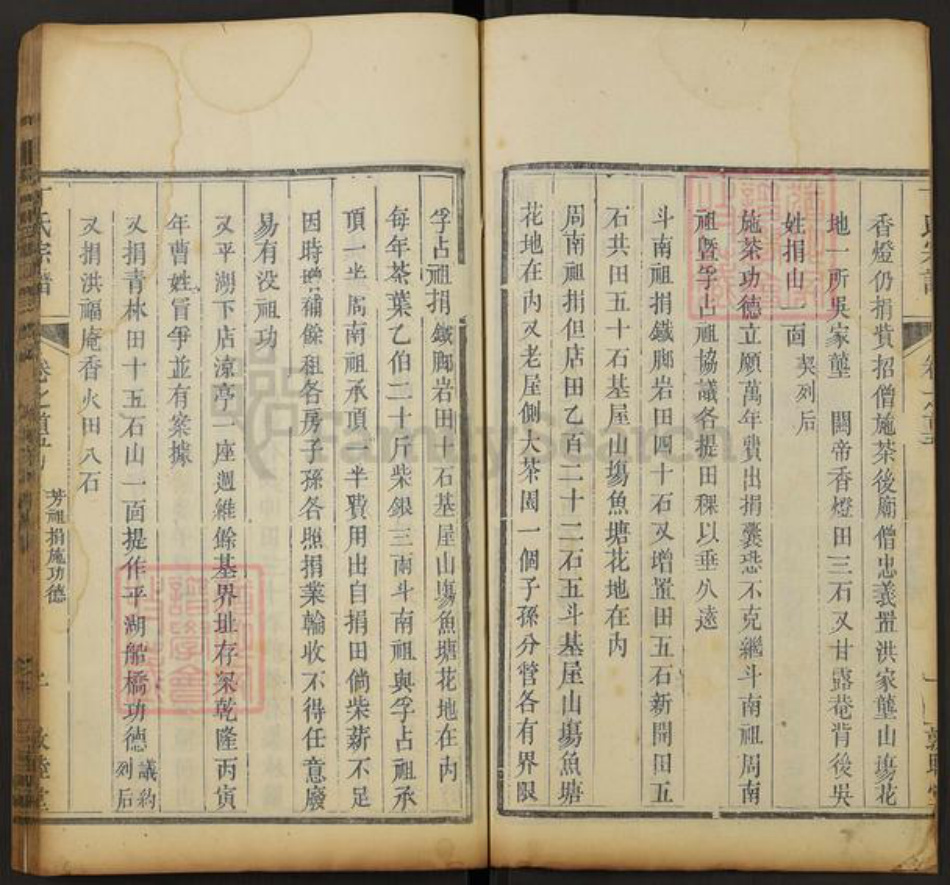 香燈仍捐貲招僧施茶後廟僧忠義置洪家壟山塲花
地一所吳家壟 關帝香燈田三石又甘露菴背後吳
姓捐山一面 契列后
施茶功德立願萬年費出捐囊恐不克繼斗南祖周南
祖暨孚占祖協議各提田稞以垂久遠
斗南祖捐鐵廊岩田四十石又增置田五石新開田五
石共田五十石基屋山塲魚塘花地在内
周南祖捐但店田乙百二十二石五斗基屋山塲魚塘
花地在内又老屋側大茶園一個子孫分管各有界限
孚占祖捐鐵廊岩田十石基屋山塲魚塘花地在内
每年茶葉乙伯二十斤柴銀三兩斗南祖與孚占祖承
頂一半周南祖承頂一半費用出自捐田倘柴薪不足
因時增補餘租各房子孫各照捐業輪收不得任意廢
易有没祖功
又平湖下店涼亭一座週維餘基界址存案乾隆丙寅
年曹姓冐爭並有案據
又捐青林田十五石山一面提作平湖船橋功德 議約列后
又捐洪福庵香火田八石
丁氏宗譜 卷之首 芳祖捐施功德 敦睦堂